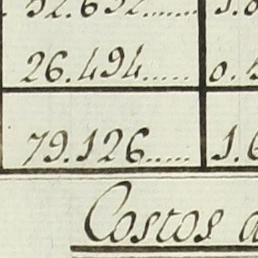 52.632......
26.494..... 0.
79.126..... 1.6
Costos d